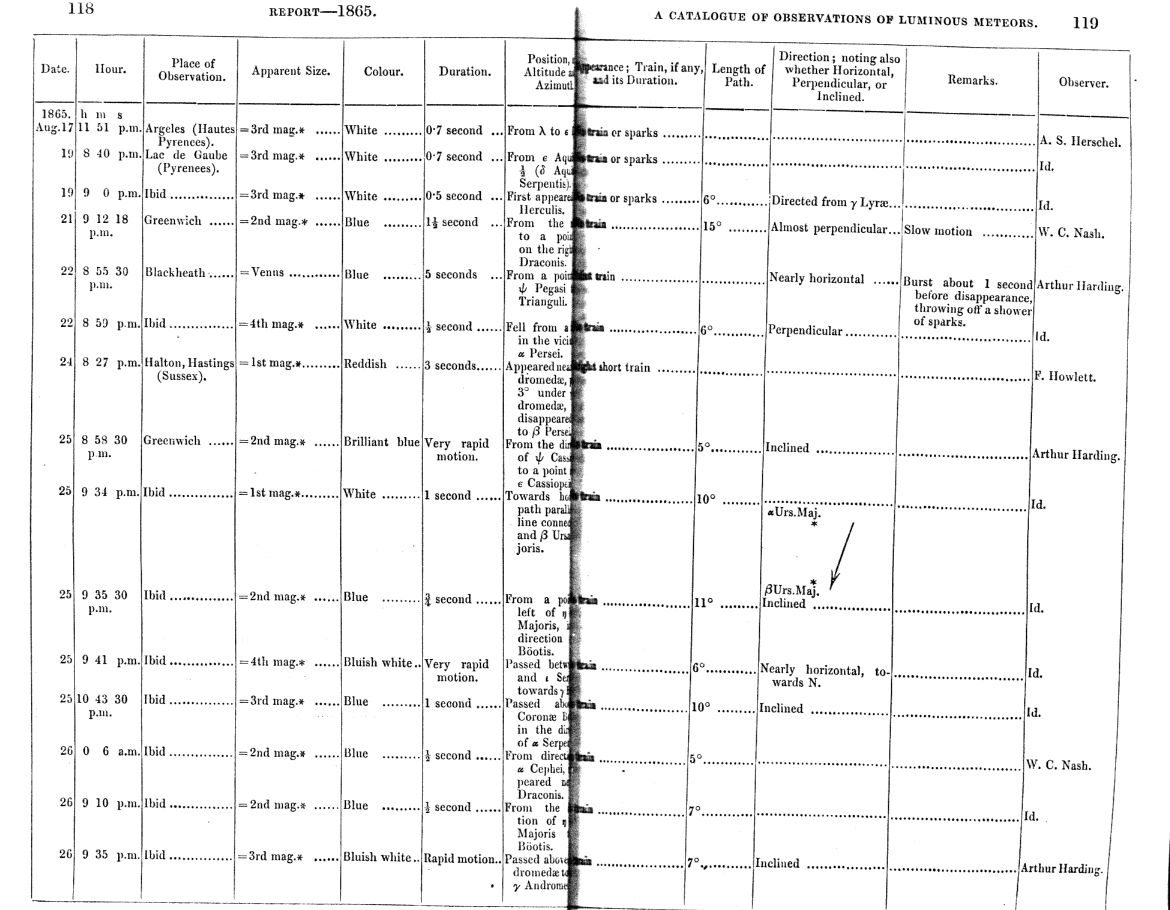 118 REPORT—1865.
A CATALOGUE OF OBSERVATIONS OF LUMINOUS METEORS. 119
Date. Hour. Place of Observation. Apparent Size. Colour. Duration. Position, Altitude Azimuth Appearance; Train, if any, and its Duration. Length of Path. Direction; noting also whether Horizontal, Perpendicular, or Inclined. Remarks. Observer.
1865. h m s
Aug.17 11 51 p.m. Argeles (Hautes =3rd mag.* ...... White ......... 0·7 second ... From λ to ε train or sparks A. S. Herschel.
Pyrenees).
19 8 40 p.m. Lac de Gaube =3rd mag.* ...... White ......... 0·7 second ... From ε Aqu train or sparks Id.
(Pyrenees). ½ (δ Aqu
Serpentis).
19 9 0 p.m. Ibid =3rd mag.* ...... White ......... 0·5 second ... First appeare train or sparks 6° Directed from γ Lyræ... Id.
Herculis.
21 9 12 18 Greenwich ...... =2nd mag.* ...... Blue ......... 1½ second ... From the train 15° Almost perpendicular... Slow motion W. C. Nash.
p.m. to a poin
on the rig
Draconis.
22 8 55 30 Blackheath ...... =Venus Blue ......... 5 seconds ... From a poin train Nearly horizontal ...... Burst about 1 second Arthur Harding.
p.m. ψ Pegasi before disappearance,
Trianguli. throwing off a shower
of sparks.
22 8 59 p.m. Ibid =4th mag.* ...... White ......... ½ second ...... Fell from a train 6° Perpendicular Id.
in the vici
α Persei.
24 8 27 p.m. Halton, Hastings =1st mag.* Reddish ...... 3 seconds...... Appeared nea short train F. Howlett.
(Sussex). dromedæ,
3° under
dromedæ,
disappeared
to β Perse
25 8 58 30 Greenwich ...... =2nd mag.* ...... Brilliant blue Very rapid From the di train 5° Inclined Arthur Harding.
p.m. motion. of ψ Cass
to a point
ε Cassiopei
25 9 34 p.m. Ibid =1st mag.* White ......... 1 second ...... Towards ho train 10° Id.
path paral αUrs.Maj.
line connec *
and β Urs
joris.
*
βUrs.Maj.
25 9 35 30 Ibid =2nd mag.* ...... Blue ......... ¾ second ...... From a po train 11° Inclined Id.
p.m. left of η
Majoris,
direction
Böotis.
25 9 41 p.m. Ibid =4th mag.* ...... Bluish white.. Very rapid Passed betw train 6° Nearly horizontal, to- Id.
motion. and ι Ser wards N.
towards γ
25 10 43 30 Ibid =3rd mag.* ...... Blue ......... 1 second ...... Passed abo train 10° Inclined Id.
p.m. Coronæ B
in the di
of α Serpe
26 0 6 a.m. Ibid =2nd mag.* ...... Blue ......... ½ second ...... From direct train 5° W. C. Nash.
α Cephei,
peared
Draconis.
26 9 10 p.m. Ibid =2nd mag.* ...... Blue ......... ½ second ...... From the train 7° Id.
tion of η
Majoris
Böotis.
26 9 35 p.m. Ibid =3rd mag.* ...... Bluish white.. Rapid motion.. Passed above train 7° Inclined Arthur Harding.
dromedæ to
γ Androme